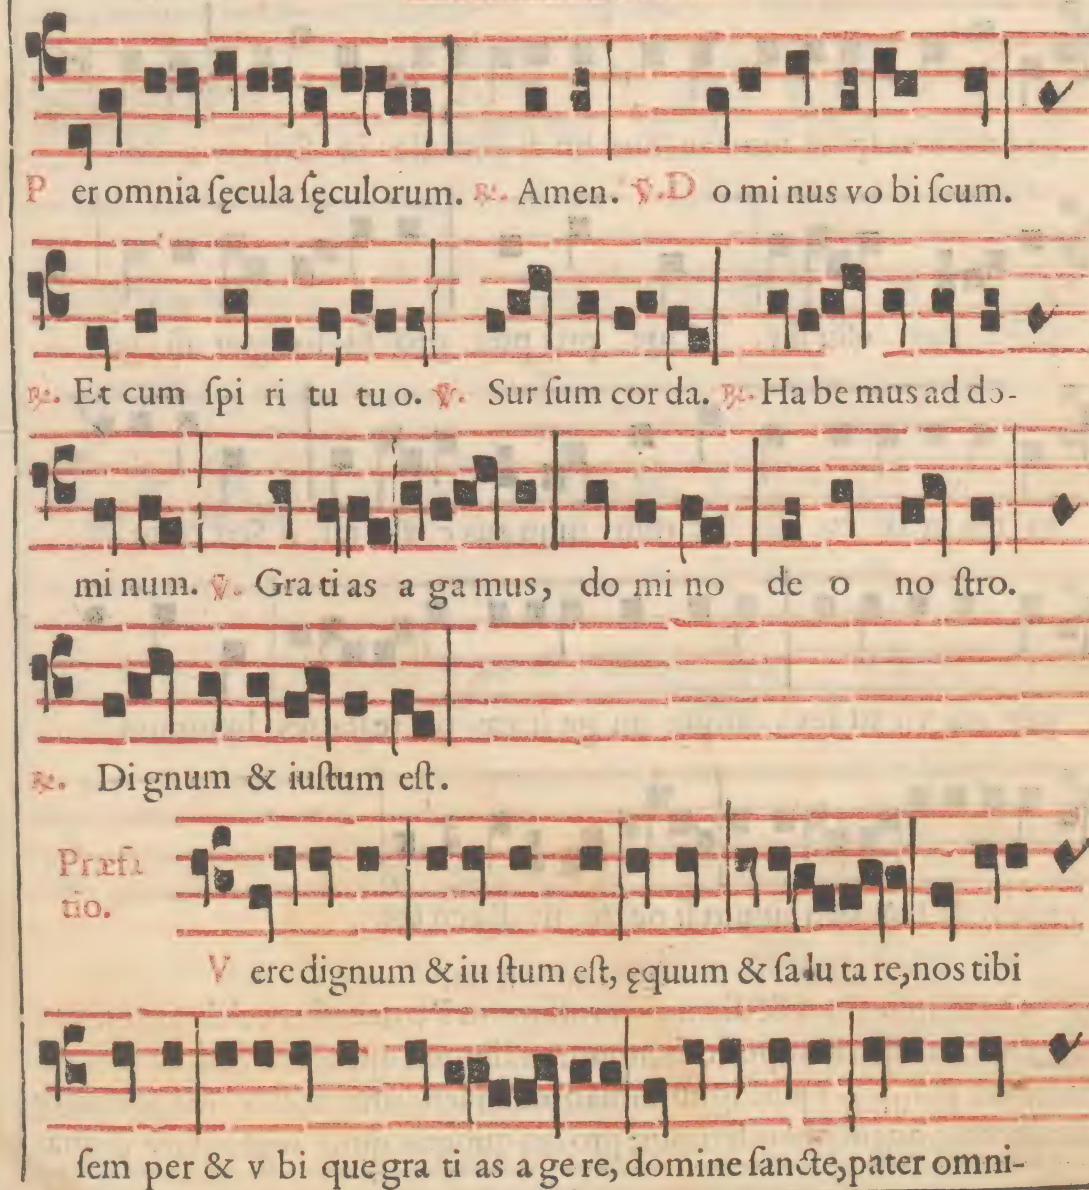 Per omnia ſęcula ſęculorum. ℟. Amen. ℣. Do mi nus vo bi ſcum.
℟. Et cum ſpi ri tu tuo. ℣. Sur ſum cor da. ℟. Ha be mus ad do-
mi num. ℣. Gra ti as a ga mus, do mi no de o no ſtro.
℟. Di gnum & iuſtum eſt.
Præfa
tio.
Vere dignum & iu ſtum eſt, ęquum & ſa lu ta re, nos tibi
ſem per & v bi que gra ti as a ge re, domine ſancte, pater omni-